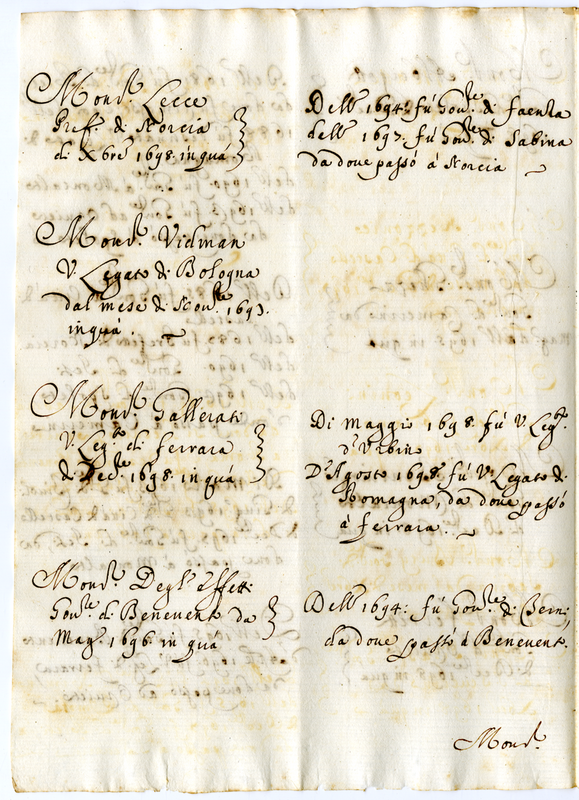 Mons.r Lecce
Pref. di Norcia
di Xbre 1698. in quá
Dell' 1694. fú Gov.re di Faenza
dell' 1697. fú Gov.re di Sabina
da dove passó á Norcia
Mons.r Vidman
V. Legato di Bologna
dal mese di Nov.bre 1693.
in quá.
Mons.r Gallerati
V. Leg.to di Ferrara
di Dec.bre 1698. in quá
Di Maggio 1698. fú V. Leg.to
d'Urbino
D'Agosto 1698. fú V. Legato di
Romagna, da dove passó
á Ferrara.
Mons.r Degl' Effetti
Gov.re di Benevento da
Mag.o 1696. in quá
Dell' 1694. fú Gov.re di Terni,
da dove passó á Benevento.
Mons.r